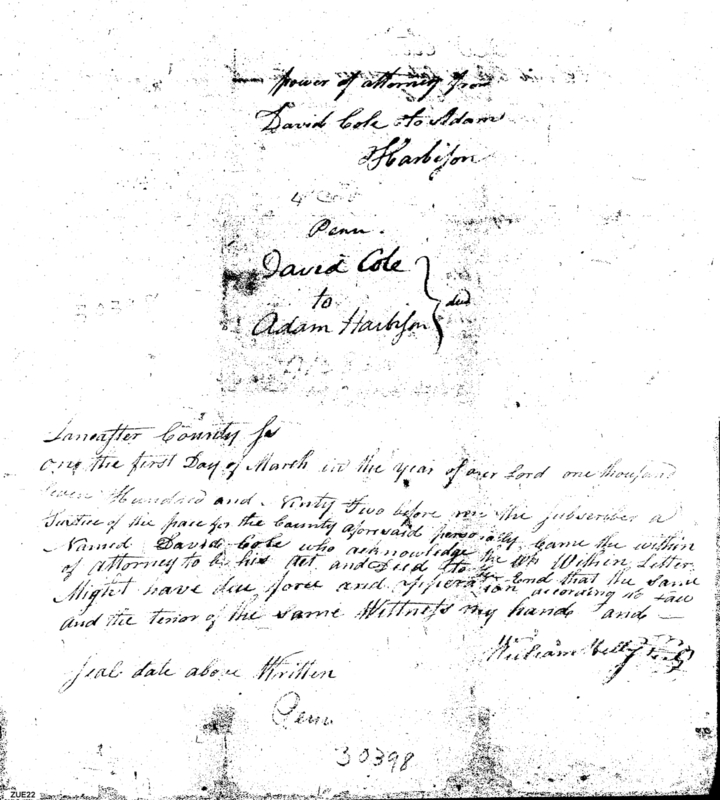 power of attorney from
David Cole to Adam
Harbison
Penn.
David Cole
to
Adam Harbison
Lancaster County Ss
on the first Day of March in the year of our Lord one thousand
Seven Hundred and Ninty Two before me the subscriber a
Justice of the peace for the County aforesaid personally Came the within
Named David Cole who acknowledge the Within Letter
of attorney to be his Act and Deed to the End that the same
Might have due force and opperation according to Law
and the tenor of the same Wittness my hand and
William
seal date above Written
Penn
30398
ZUE22